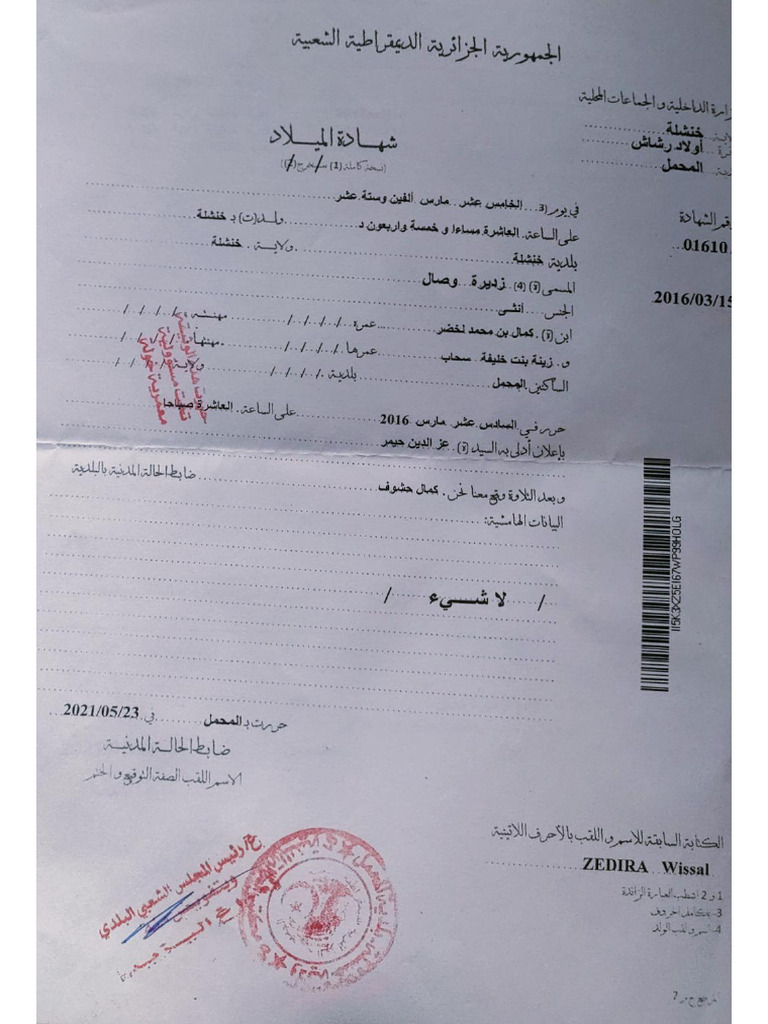 الجمهورية الجزائرية الديمقراطية الشعبية
وزارة الداخلية و الجماعات المحلية
ولاية خنشلة
دائرة أولاد رشاش
بلدية المحمل
شهادة الميلاد
نسخة كاملة (1)
رقم الشهادة
01610
2016/03/15
في يوم (3 الخامس عشر مارس ألفين وستة عشر
على الساعة العاشرة مساءا و خمسة واربعون د ولد(ت) بـ خنشلة
بلدية خنشلة ولاية خنشلة
المسمى (ة) (4) زديرة وصال
الجنس أنثى
ابن (ة) كمال بن محمد لخضر عمره / / / / مهنته / / / /
و زينة بنت خليفة سحاب عمرها / / / / مهنتها / / / /
الساكنين المحمل بلدية / / / / ولاية / / / /
حرر في السادس عشر مارس 2016 على الساعة العاشرة صباحا
بإعلان أدلى به السيد (ة) عز الدين حيمر
و بعد التلاوة وقع معنا نحن كمال حشوف ضابط الحالة المدنية بالبلدية
البيانات الهامشية:
/ لا شيء /
115K3XZ5E167WP99H0LG
حررت بـ المحمل في 2021/05/23
ضابط الحالة المدنية
الاسم اللقب الصفة التوقيع و الختم
ع/ رئيس المجلس الشعبي البلدي
الكتابة السابقة للاسم و اللقب بالأحرف اللاتينية
ZEDIRA Wissal
1 و 2 اشطب العبارة الزائدة
3- بكامل الحروف
4- اسم و لقب الولد